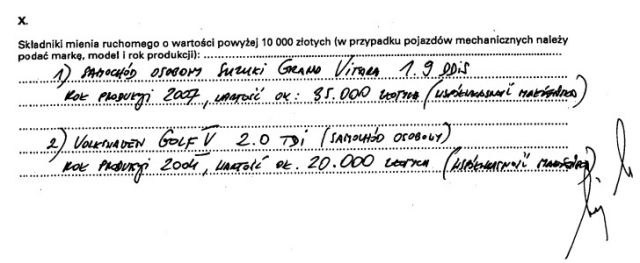 X.
Składniki mienia ruchomego o wartości powyżej 10 000 złotych (w przypadku pojazdów mechanicznych należy
podać markę, model i rok produkcji):
1) SAMOCHÓD OSOBOWY SUZUKI GRAND VITARA 1.9 DDIS
ROK PRODUKCJI 2007, WARTOŚĆ OK: 35.000 ZŁOTYCH (WSPÓŁWŁASNOŚĆ MAŁŻEŃSKA)
2) VOLKSWAGEN GOLF V 2.0 TDI (SAMOCHÓD OSOBOWY)
ROK PRODUKCJI 2004, WARTOŚĆ OK. 20.000 ZŁOTYCH (WSPÓŁWŁASNOŚĆ MAŁŻEŃSKA)